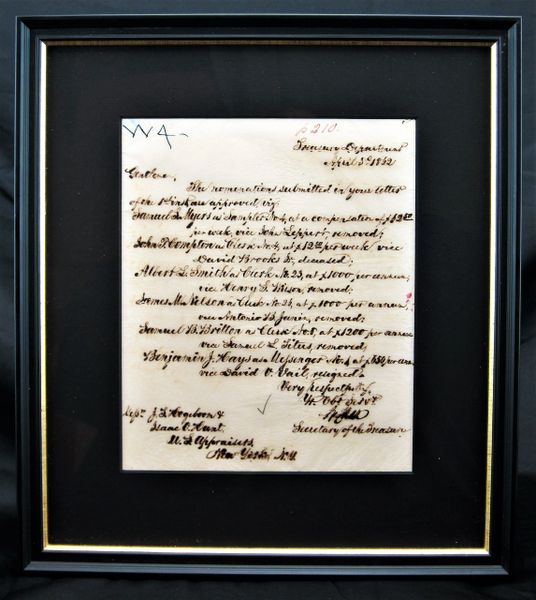 W4-
p 210.
Treasury Department
April 3d 1882
Gentlemen,
The nominations submitted in your letter
of the 1st inst. are approved viz:
Samuel L. Myers as Sampler No. 4, at a compensation of $12.00
per week, vice John Leppert, removed;
John P. Compton as Clerk No. 4, at $12.00 per week vice
David Brooks Jr, deceased;
Albert L. Smith as Clerk No. 23, at $1000 per annum,
vice Henry J. Wilson, removed;
James M. Nelson as Clerk No. 24, at $1000 per annum
vice Antonio B. removed;
Samuel B. Britton as Clerk No. 8, at $1200 per annum
vice Samuel L. Titus, removed;
Benjamin J. Hays as Messenger No. 4, at per ann
vice David O. Vail, resigned.
Very respectfully,
Yr. Obt Servt
Secretary of the Treasury
J. S. Hogeboom &
Isaac O. Hunt
U.S. Appraisers
New York, N.Y.